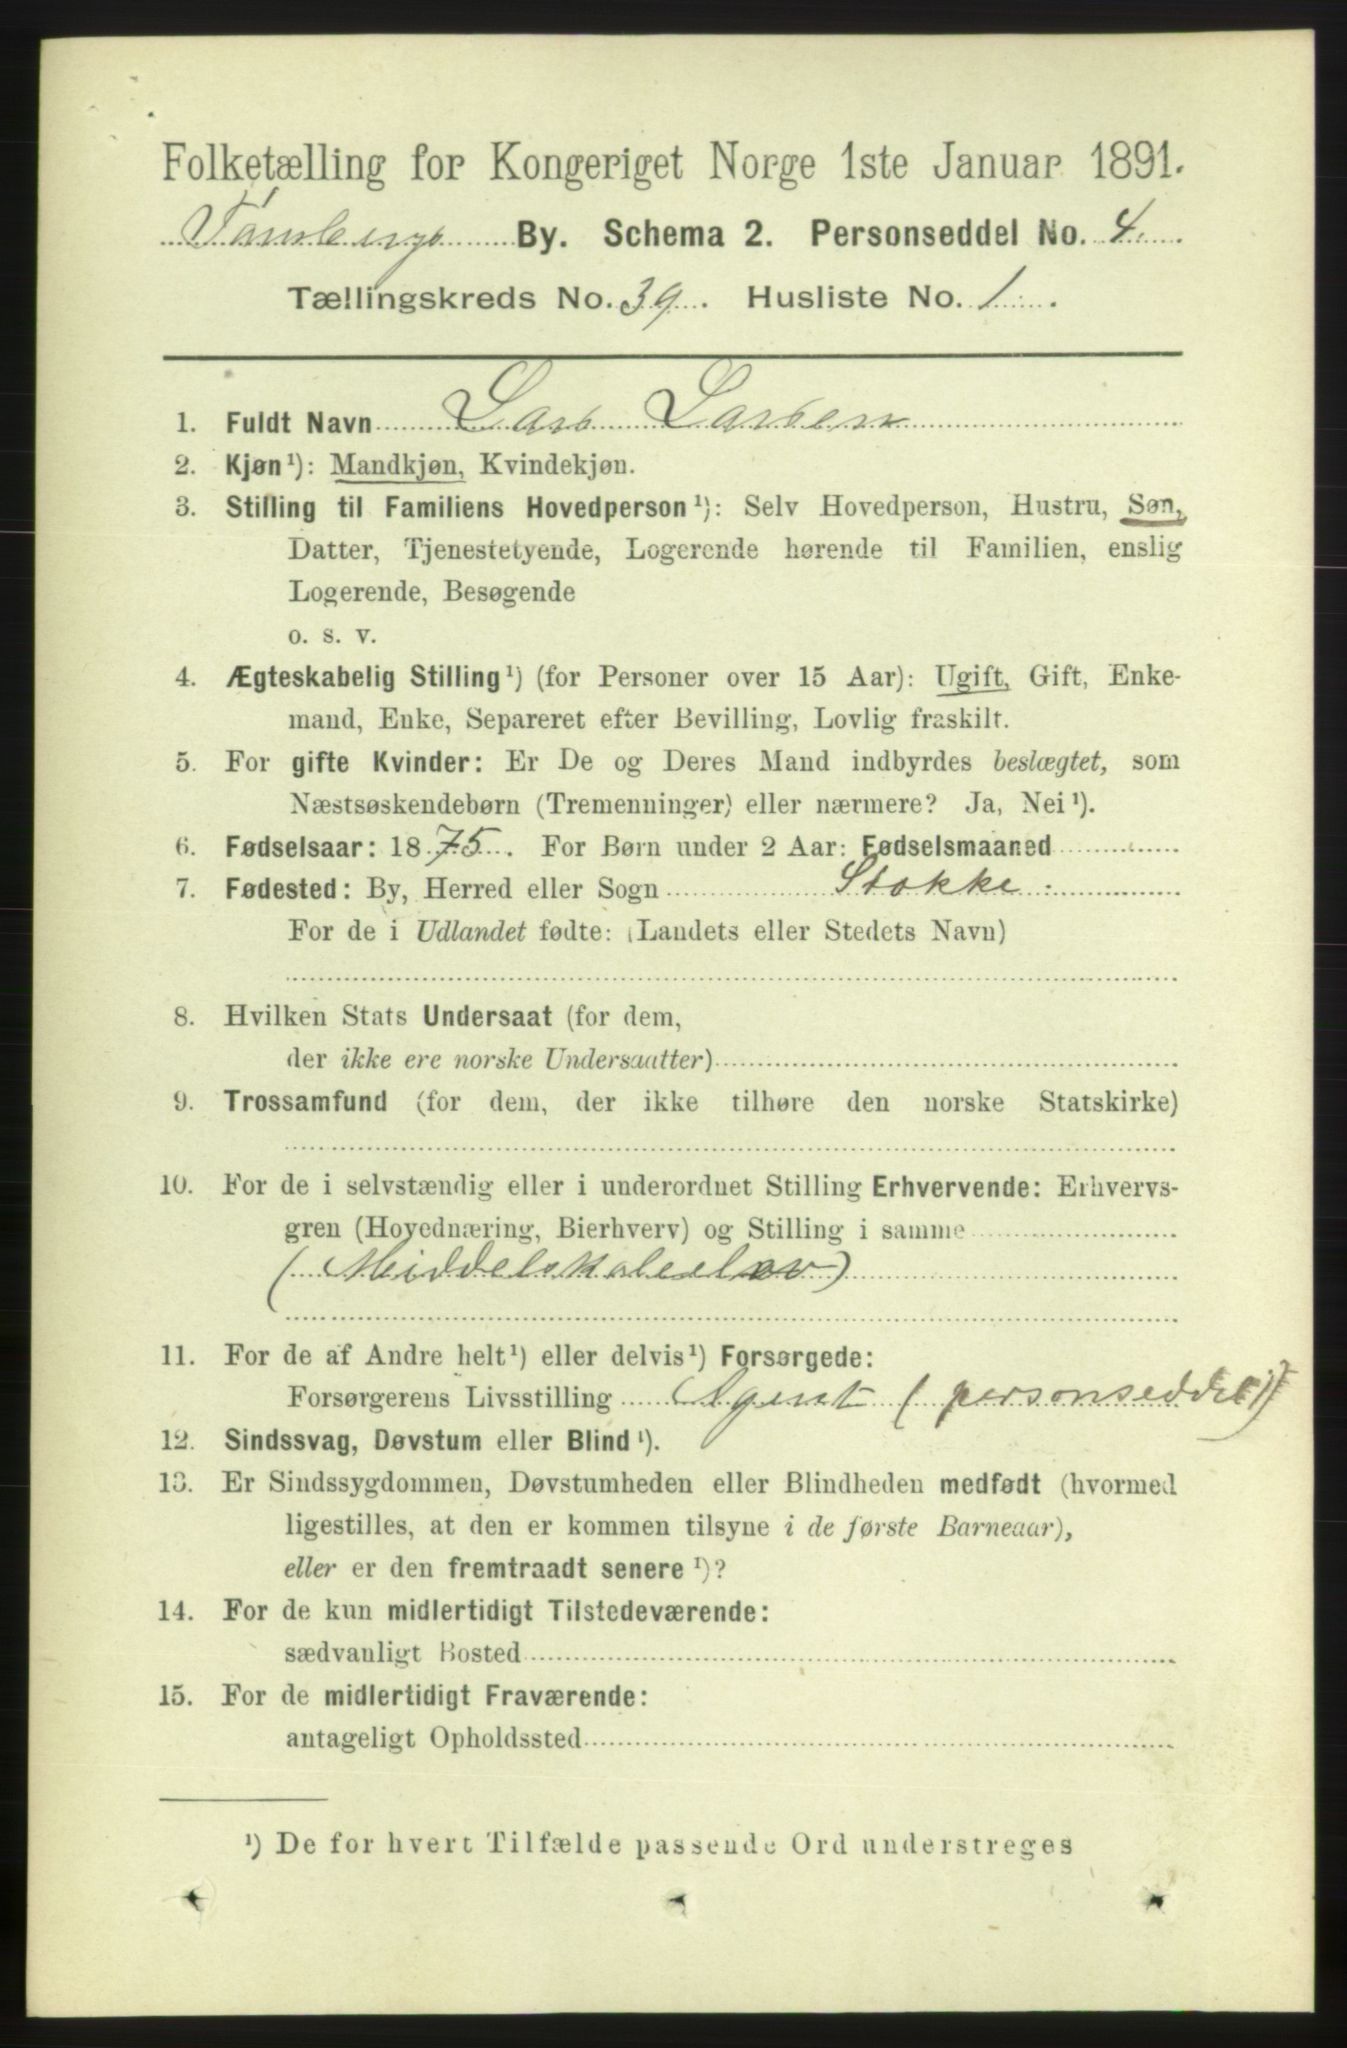 Folketælling for Kongeriget Norge 1ste Januar 1891.
Tønsbergs By. Schema 2. Personseddel No. 4.
Tællingskreds No. 39. Husliste No. 1.
1. Fuldt Navn Lars Larsen
2. Kjøn¹): Mandkjøn, Kvindekjøn.
3. Stilling til Familiens Hovedperson¹): Selv Hovedperson, Hustru, Søn,
Datter, Tjenestetyende, Logerende hørende til Familien, enslig
Logerende, Besøgende
o. s. v.
4. Ægteskabelig Stilling¹) (for Personer over 15 Aar): Ugift, Gift, Enke-
mand, Enke, Separeret efter Bevilling, Lovlig fraskilt.
5. For gifte Kvinder: Er De og Deres Mand indbyrdes beslægtet, som
Næstsøskendebørn (Tremenninger) eller nærmere? Ja, Nei¹).
6. Fødselsaar: 1875. For Børn under 2 Aar: Fødselsmaaned
7. Fødested: By, Herred eller Sogn Stokke
For de i Udlandet fødte: (Landets eller Stedets Navn)
8. Hvilken Stats Undersaat (for dem,
der ikke ere norske Undersaatter)
9. Trossamfund (for dem, der ikke tilhøre den norske Statskirke)
10. For de i selvstændig eller i underordnet Stilling Erhvervende: Erhvervs-
gren (Hovednæring, Bierhverv) og Stilling i samme
(Middelskoleelev)
11. For de af Andre helt¹) eller delvis¹) Forsørgede:
Forsørgerens Livsstilling Agent (personseddel 1)
12. Sindssvag, Døvstum eller Blind¹).
13. Er Sindssygdommen, Døvstumheden eller Blindheden medfødt (hvormed
ligestilles, at den er kommen tilsyne i de første Barneaar),
eller er den fremtraadt senere¹)?
14. For de kun midlertidigt Tilstedeværende:
sædvanligt Bosted
15. For de midlertidigt Fraværende:
antageligt Opholdssted
¹) De for hvert Tilfælde passende Ord understreges